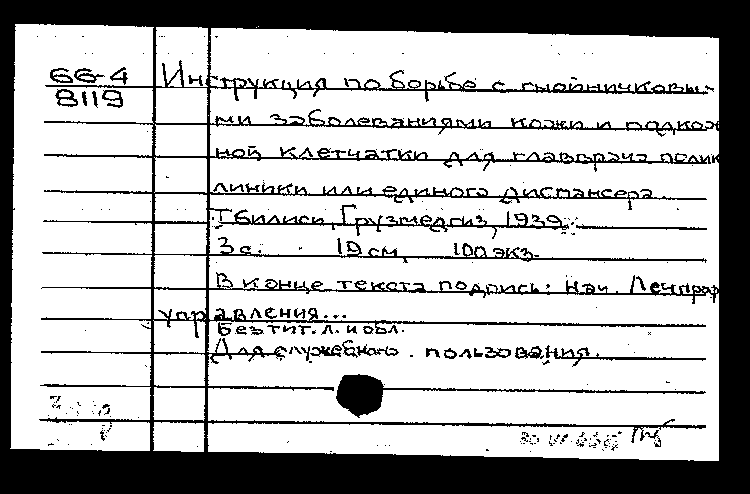 66-4
8119
Инструкция по борьбе с гнойничковы-
ми заболеваниями кожи и подкож
ной клетчатки для главврача полик
линики или единого диспансера
Тбилиси, Грузмедгиз, 1939.
3 с. 19 см, 100 экз.
В конце текста подпись: Нач. Лечпроф
управления...
Без тит. л. и обл.
Для служебного пользования.